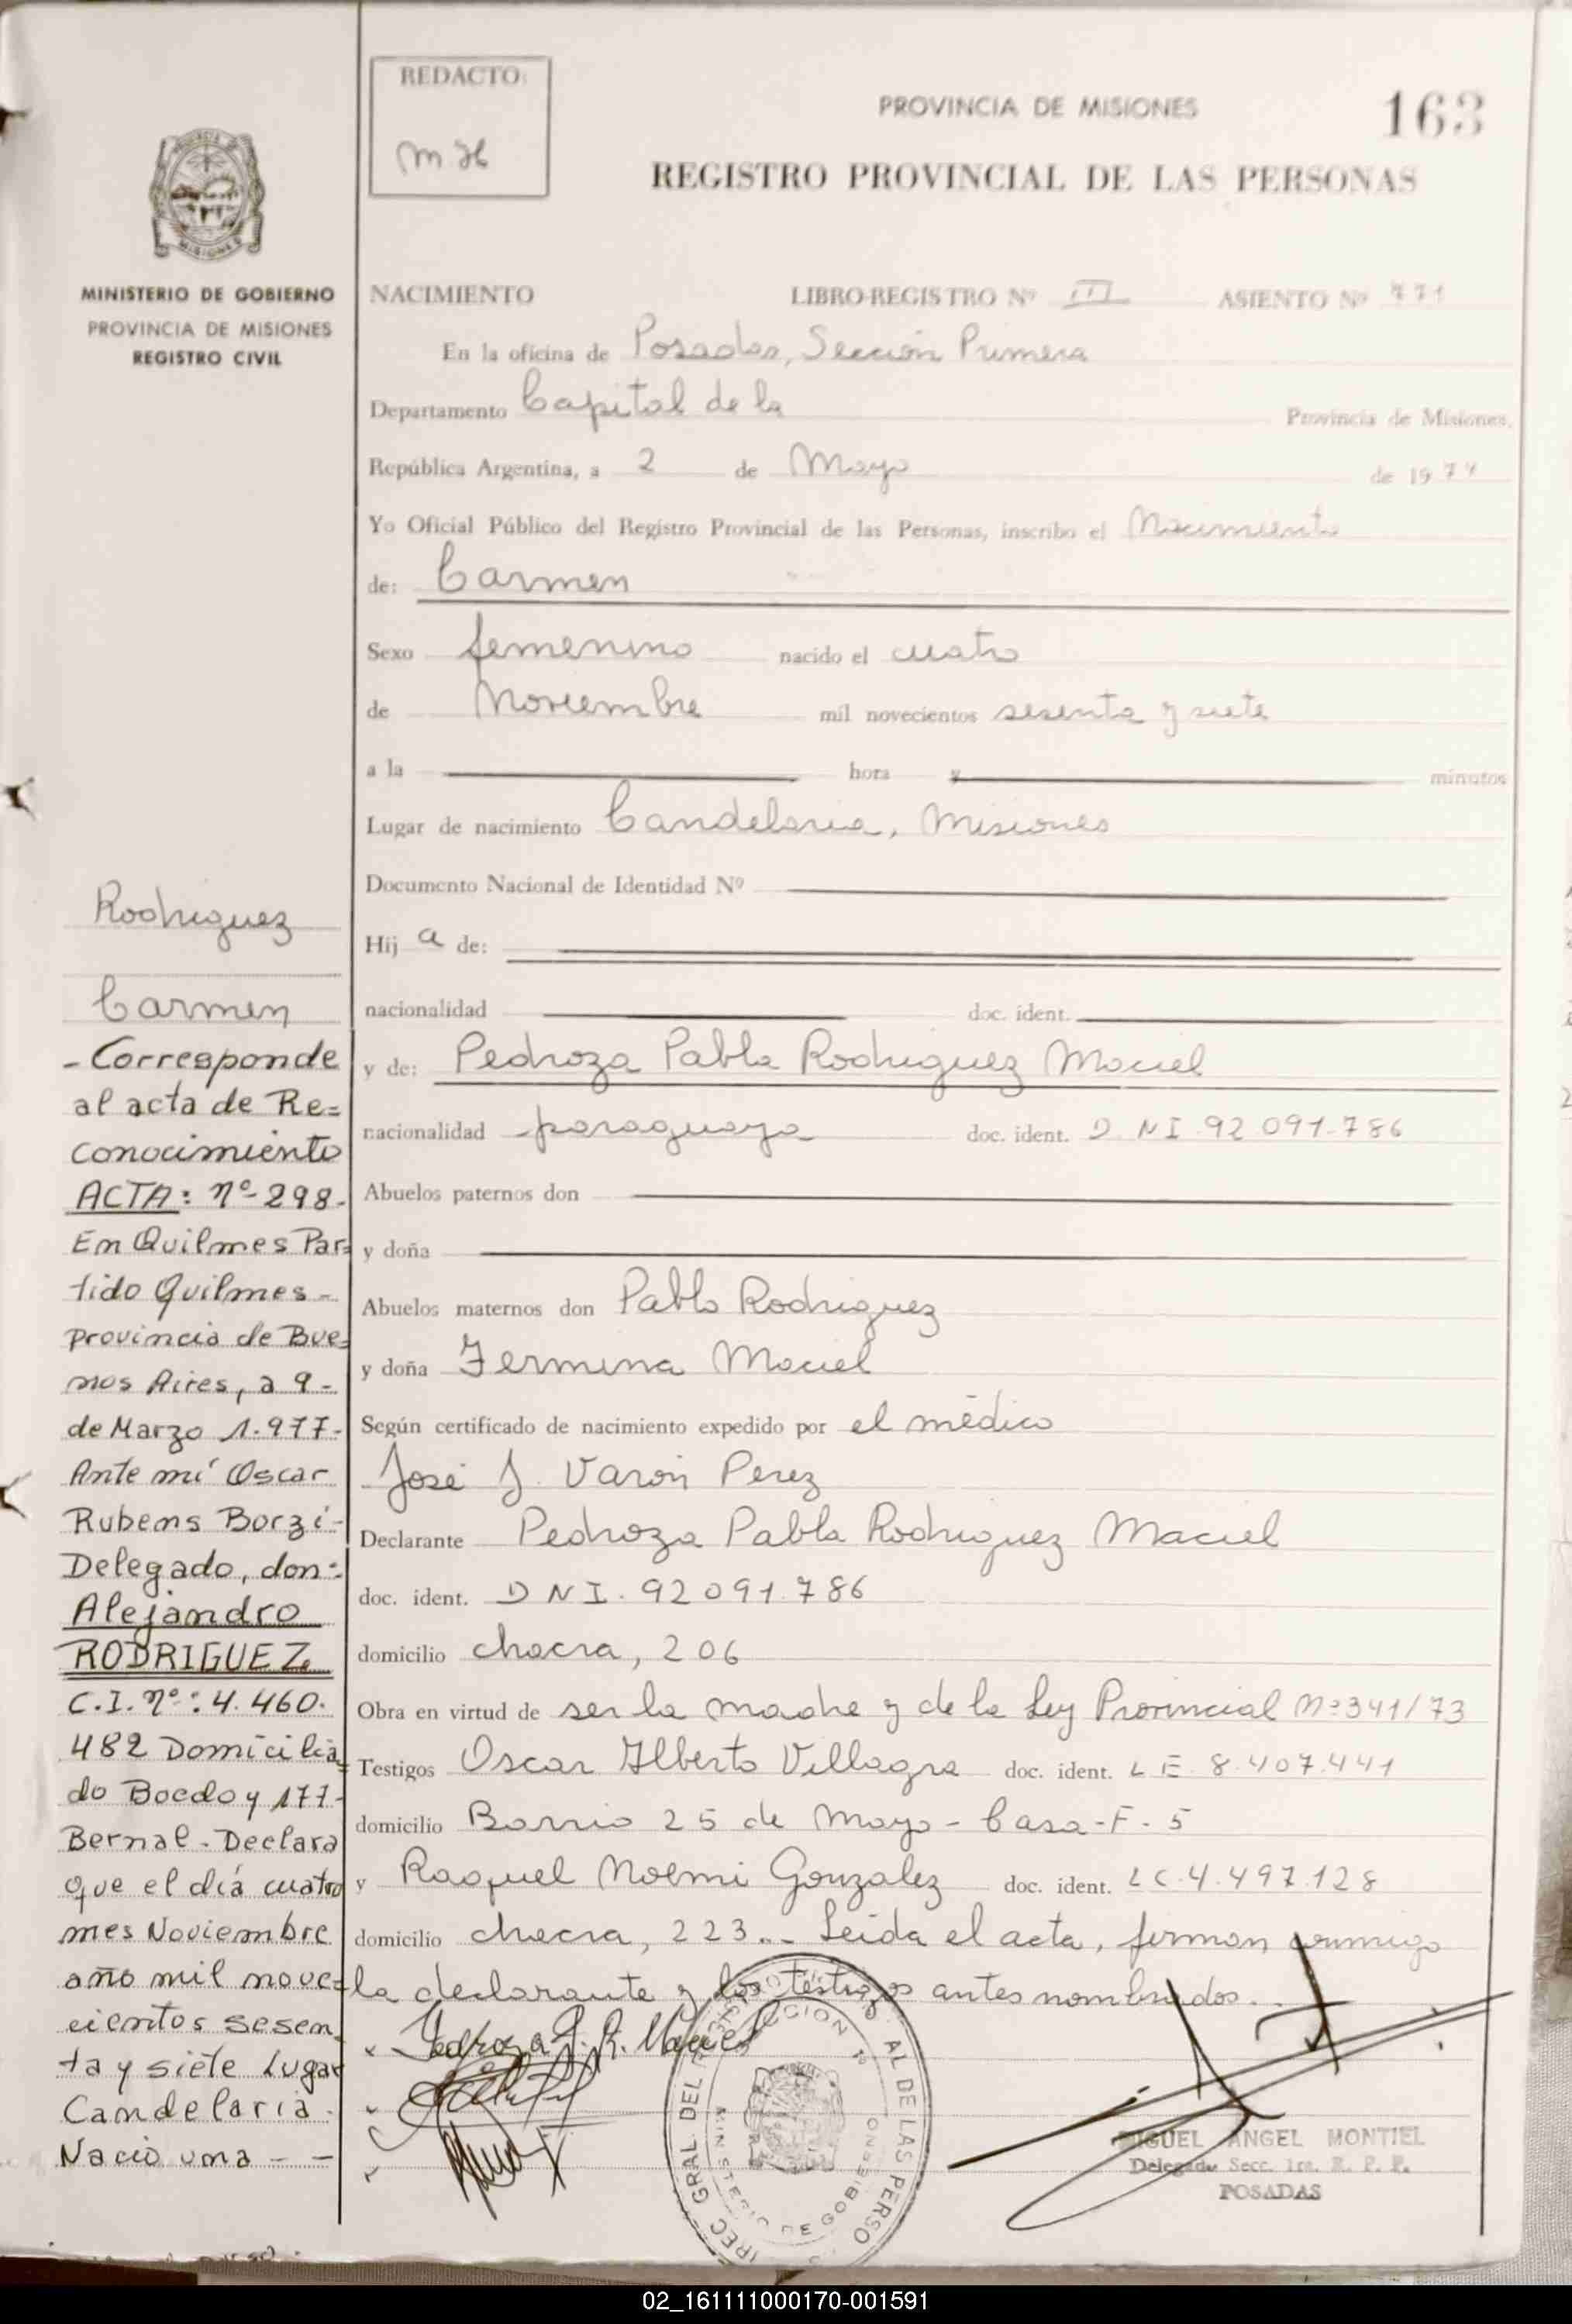 REDACTO:
m H
PROVINCIA DE MISIONES
163
REGISTRO PROVINCIAL DE LAS PERSONAS
MISIONES
MINISTERIO DE GOBIERNO
PROVINCIA DE MISIONES
REGISTRO CIVIL
NACIMIENTO LIBRO-REGISTRO Nº III ASIENTO Nº 771
En la oficina de Posadas, Sección Primera
Departamento Capital de la Provincia de Misiones,
República Argentina, a 2 de Mayo de 1974
Yo Oficial Público del Registro Provincial de las Personas, inscribo el Nacimiento
de: Carmen
Sexo femenino nacido el cuatro
de Noviembre mil novecientos sesenta y siete
a la hora y minutos
Lugar de nacimiento Candelaria, Misiones
Documento Nacional de Identidad Nº
Hij a de:
nacionalidad doc. ident.
y de: Pedroza Pabla Rodriguez Maciel
nacionalidad paraguaya doc. ident. D.N.I. 92 091.786
Abuelos paternos don
y doña
Abuelos maternos don Pablo Rodriguez
y doña Fermina Maciel
Según certificado de nacimiento expedido por el médico
José J. Varon Perez
Declarante Pedroza Pabla Rodriguez Maciel
doc. ident. D N I. 92 091.786
domicilio chacra, 206
Obra en virtud de ser la madre y de la Ley Provincial Nº 341/73
Testigos Oscar Alberto Villagra doc. ident. L E. 8.407.441
domicilio Barrio 25 de Mayo - Casa - F - 5
y Raquel Noemi Gonzalez doc. ident. L C. 4.497.128
domicilio chacra, 223.- Leida el acta, firman conmigo
la declarante y los testigos antes nombrados.
Pedroza P. R. Maciel
MIGUEL ANGEL MONTIEL
Delegado Secc. 1ra. R. P. P.
POSADAS
SECCION 1º
MINISTERIO DE GOBIERNO
Rodriguez
Carmen
- Corresponde
al acta de Re=
conocimiento
ACTA: nº 298.
En Quilmes Par=
tido Quilmes -
provincia de Bue=
nos Aires, a 9 -
de Marzo 1.977-
Ante mí Oscar
Rubens Borzi -
Delegado, don:
Alejandro
RODRIGUEZ
C.I. nº: 4.460.
482 Domicilia=
do Boedo y 177-
Bernal - Declara
que el día cuatro
mes Noviembre
año mil nove=
cientos sesen
ta y siete Lugar
Candelaria -
Nació una - -
02_161111000170-001591